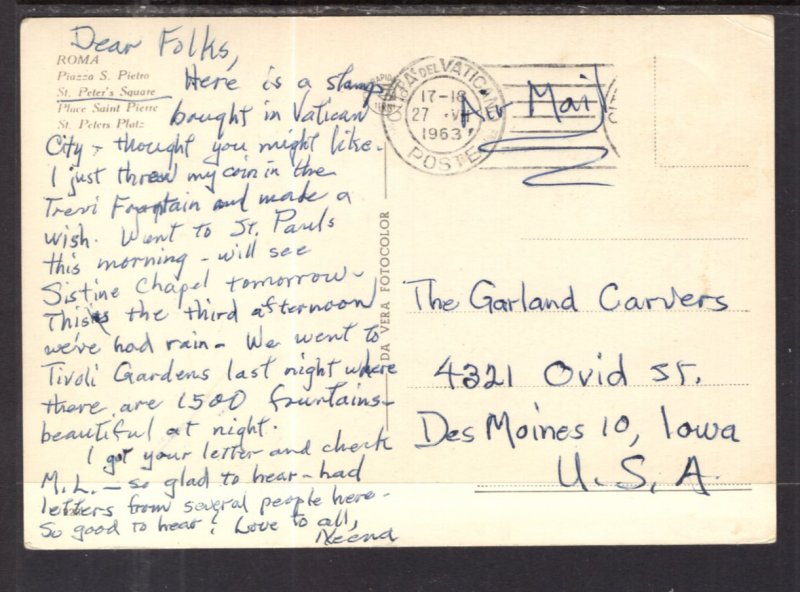 Dear Folks,
ROMA
Piazza S. Pietro
St. Peter's Square
Place Saint Pierre
St. Peters Platz
Here is a stamp
bought in Vatican
City - thought you might like.
I just threw my coin in the
Trevi Fountain and made a
wish. Went to St. Pauls
this morning - will see
Sistine Chapel tomorrow -
This is the third afternoon
we've had rain - We went to
Tivoli Gardens last night where
there are 1500 fountains -
beautiful at night.
I got your letter and check
M.L. - so glad to hear - had
letters from several people here -
So good to hear! Love to all,
Neena
DA VERA FOTOCOLOR
CITTA DEL VATICANO
17-18
27
1963
POSTE
Air Mail
The Garland Carvers
4321 Ovid St.
Des Moines 10, Iowa
U.S.A.